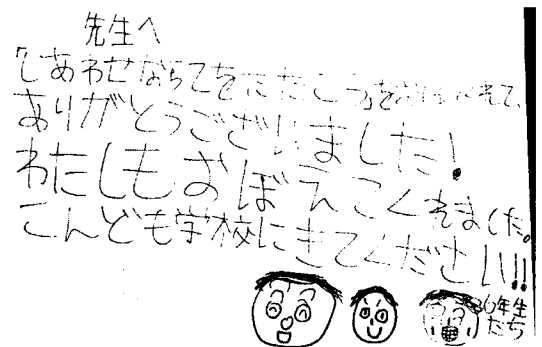 先生へ
「しあわせならてをたたこう」を
ありがとうございました!
わたしもおぼえてくれました。
こんども学校にきてください!!!
6年生
たち